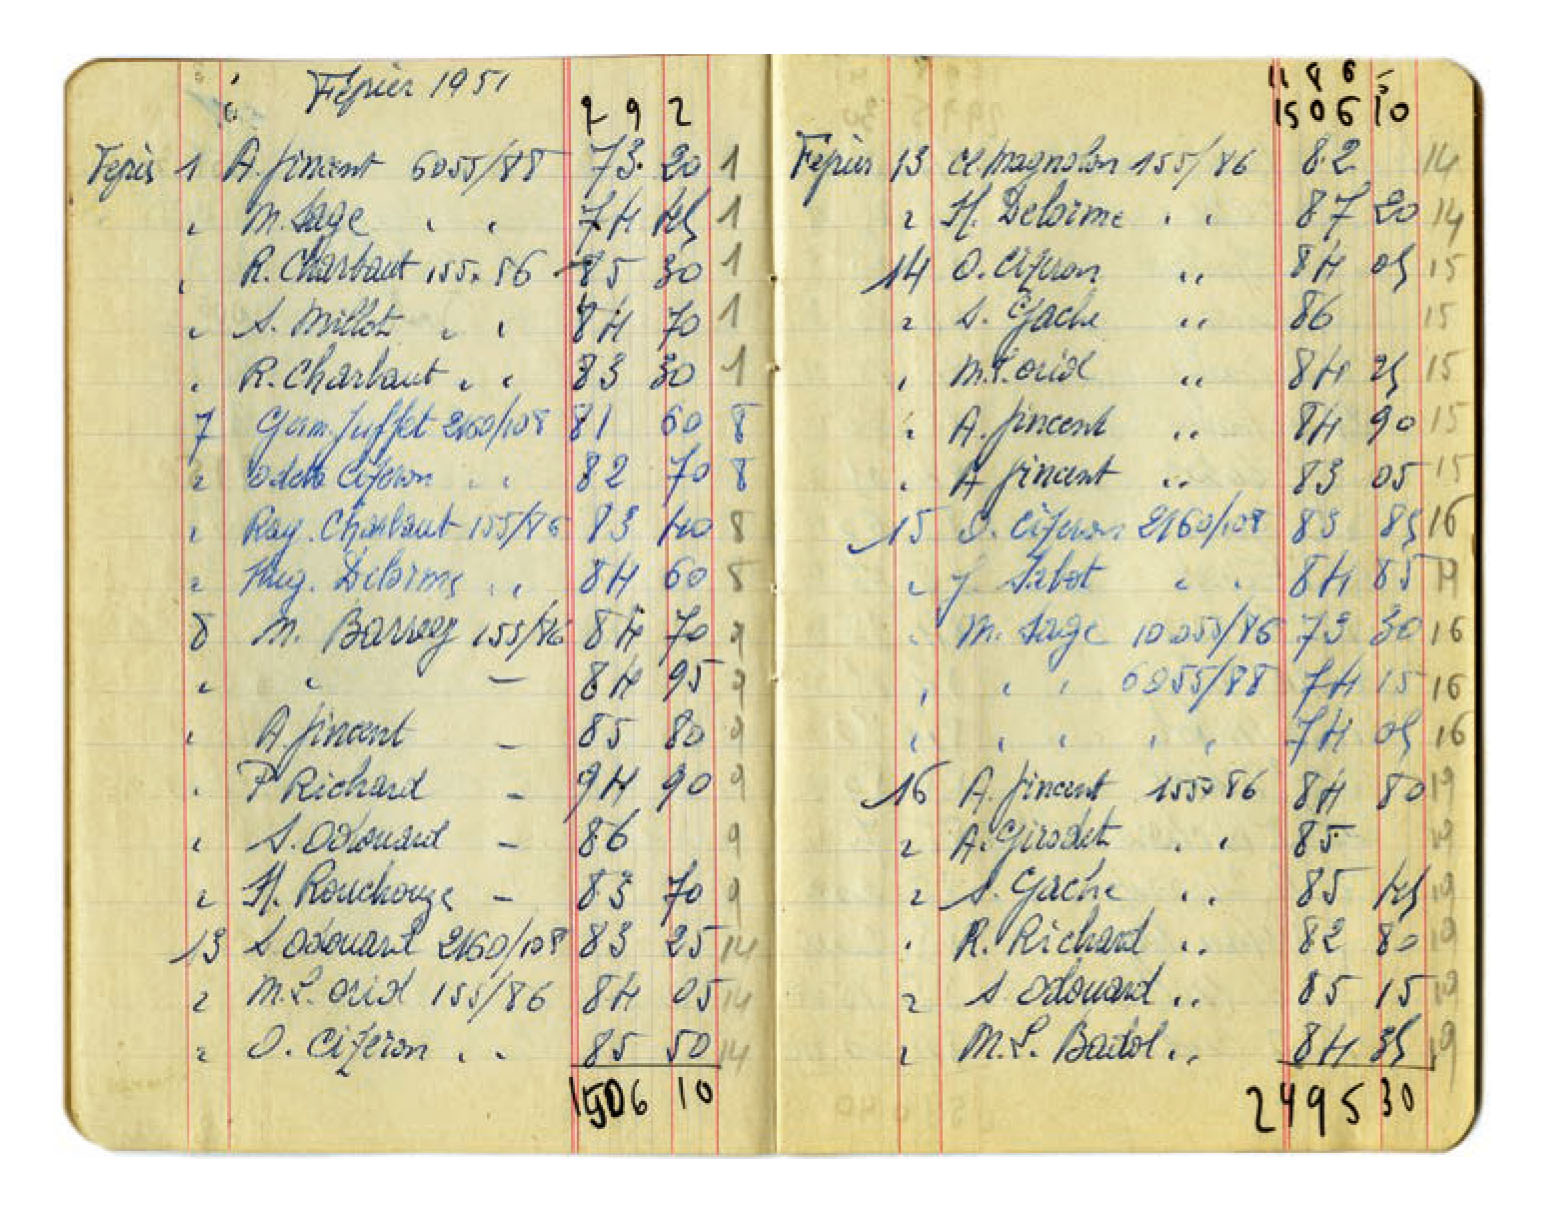 Février 1951
7 9 2
Février 1 A. Vincent 6055/85 73 20 1
" M. Sage " " 74 45 1
" R. Charbaut 155 × 86 85 30 1
" S. Millot " " 84 70 1
" R. Charbaut " " 83 30 1
7 Germ. Juffet 2160/108 81 60 8
" Odette Ciféron " " 82 70 8
" Ray. Charbaut 155/86 83 40 8
" Hug. Delorme " " 84 60 8
8 M. Barroy 155/86 84 70 9
" " — 84 95 9
" A. Vincent — 85 80 9
" P. Richard — 94 90 9
" S. Odouard — 86 9
" H. Rouchouze — 83 70 9
13 S. Odouard 2160/108 83 25 14
" M.L. Oriol 155/86 84 05 14
" O. Ciféron " " 85 50 14
1506 10
11 8 6 5
1506 10
Février 13 Cl. Magnolon 155/86 82 14
" H. Delorme " " 87 20 14
14 O. Ciféron " " 84 05 15
" S. Gache " " 86 15
" M.L. Oriol " " 84 25 15
" A. Vincent " " 84 90 15
" A. Vincent " " 83 05 15
15 O. Ciféron 2160/108 83 85 16
" J. Sabot " " 84 85
" M. Sage 10055/86 73 30 16
" " " 6055/88 74 15 16
" " " " " 74 05 16
16 A. Vincent 155 × 86 84 80 19
" A. Girodet " " 85 19
" S. Gache " " 85 45 19
" R. Richard " " 82 80 19
" S. Odouard " " 85 15 19
" M.L. Badol " " 84 35 19
2495 30